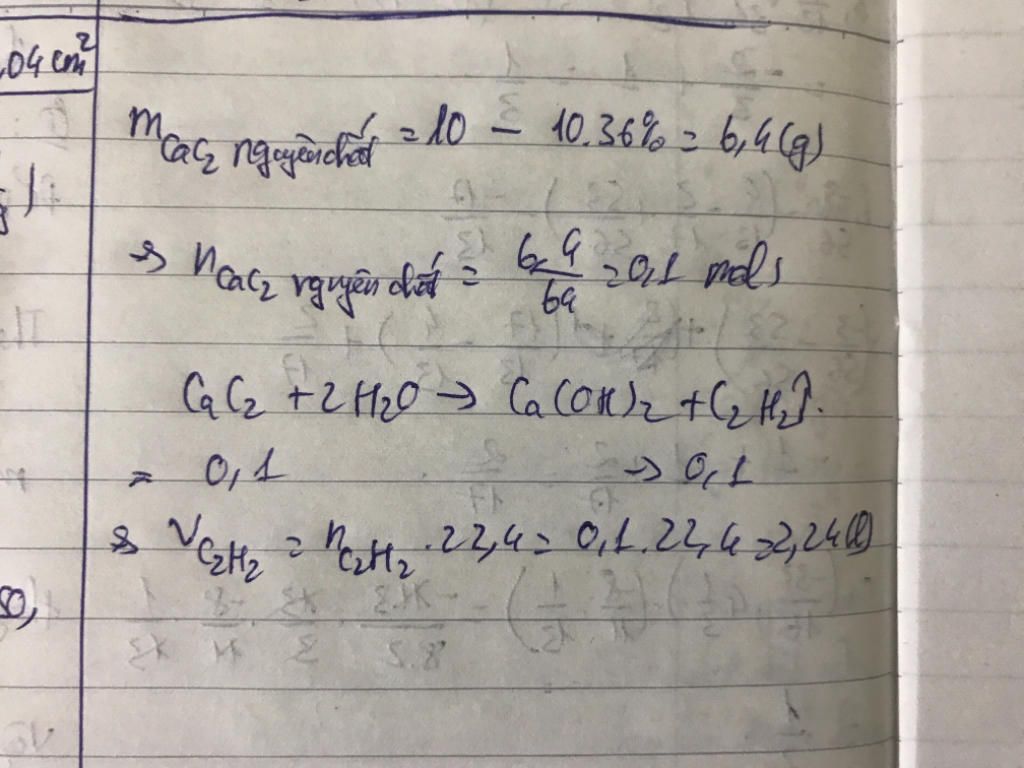 ,04 cm²
m CaC₂ nguyên chất = 10 - 10.36% = 6,4(g)
=> n CaC₂ nguyên chất = 6,4/64 = 0,1 mol
CaC₂ + 2H₂O → Ca(OH)₂ + C₂H₂↑.
= 0,1 → 0,1
=> V C₂H₂ = n C₂H₂ . 22,4 = 0,1.22,4 = 2,24(l)